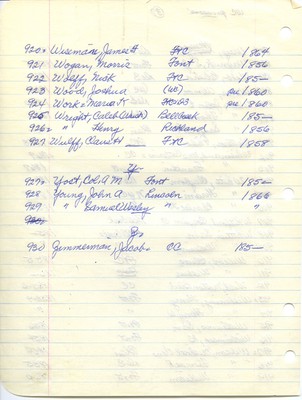 920. Wiseman, James H FC 1864
921 Wogan, Morris Font 1856
922 Wolff, Nick FC 185-
923 Wood, Joshua (us) pre 1860
924 Work, Maria K pre 1860
925 Wright, Caleb Bellbrook 185-
926 " Henry Richland 1856
927 Wulff, Claus H FC 1858
Y
927 Yost, Col. A M Font 185-
928 Young, John A Lincoln 1866
929 " Samuel Wesley " "
Z
930 Zimmerman, Jacob CC 185-